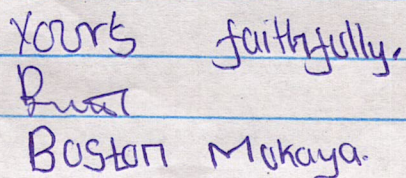 Yours faithfully.
Boston Mokaya.